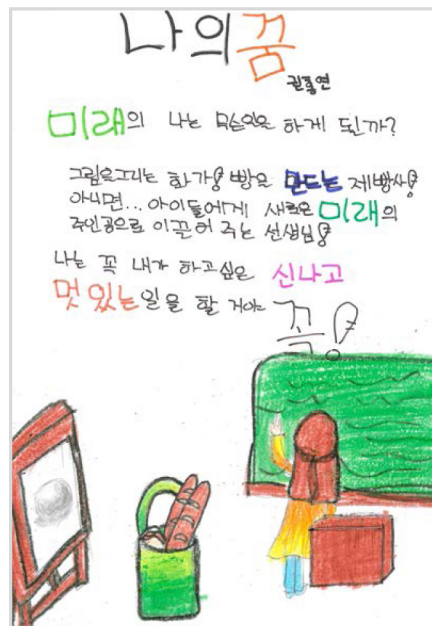 나의꿈
권홍연
미래의 나는 무슨일을 하게 될까?
그림을그리는 화가! 빵을 만드는 제빵사!
아니면... 아이들에게 새로운 미래의
주인공으로 이끌어 주는 선생님!
나는 꼭 내가 하고싶은 신나고
멋 있는일을 할 거야 꼭!